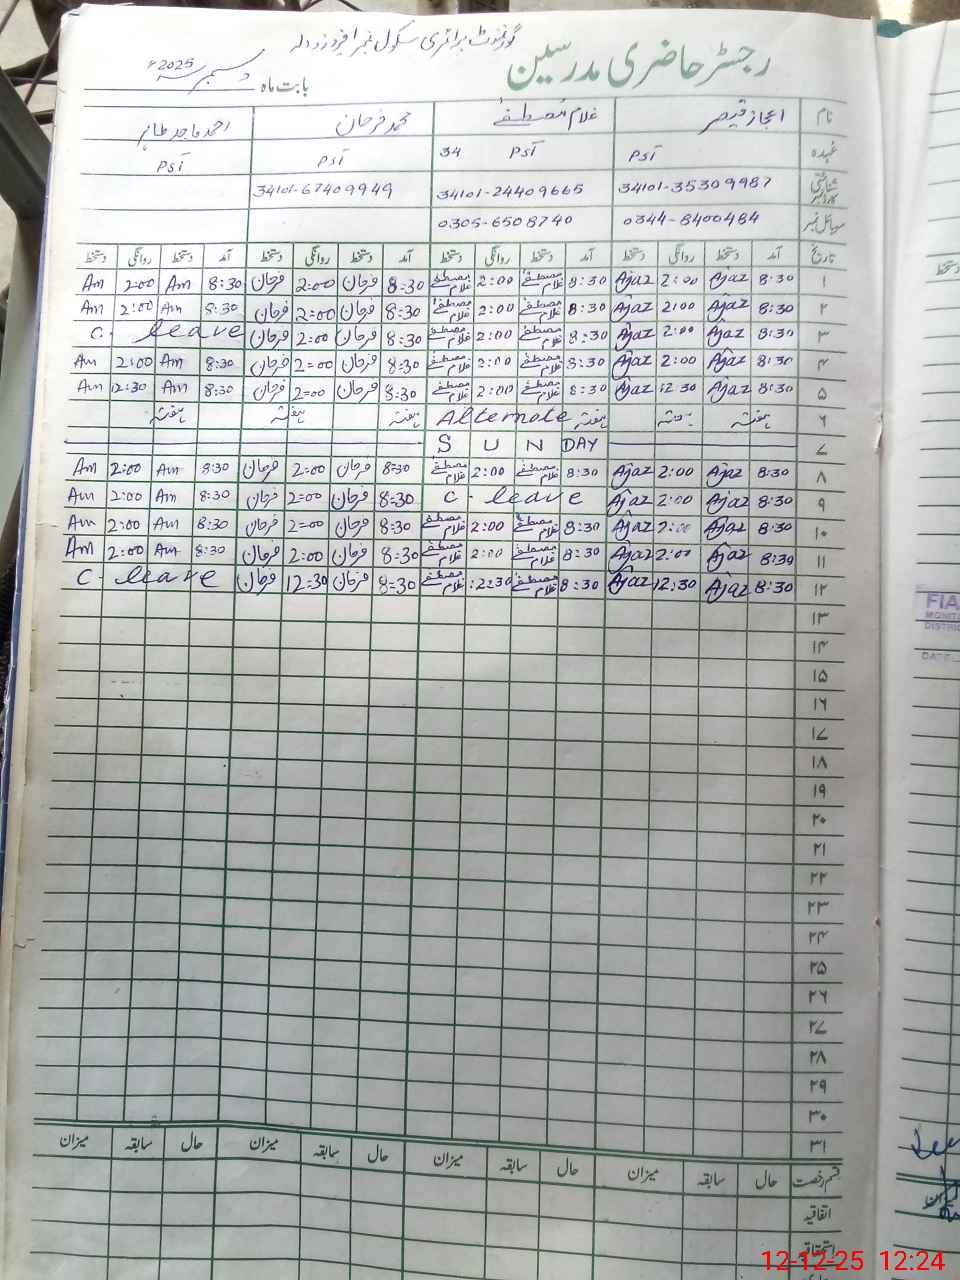 گورنمنٹ پرائمری سکول نمبر
رجسٹر حاضری مدرسین
بابت ماہ دسمبر 2025ء
نام اعجاز قیصر غلام مصطفےٰ محمد فرحان احمد ماجد طاہر
عہدہ PST PST 34 PST PST
شناختی کارڈ نمبر 34101-35309987 34101-24409665 34101-67409949
موبائل نمبر 0344-8400484 0305-6508740
تاریخ آمد دستخط روانگی دستخط آمد دستخط روانگی دستخط آمد دستخط روانگی دستخط آمد دستخط روانگی دستخط
۱ 8:30 Ajaz 2:00 Ajaz 8:30 غلام مصطفےٰ 2:00 غلام مصطفےٰ 8:30 فرحان 2:00 فرحان 8:30 Am 2:00 Am
۲ 8:30 Ajaz 2:00 Ajaz 8:30 غلام مصطفےٰ 2:00 غلام مصطفےٰ 8:30 فرحان 2:00 فرحان 8:30 Am 2:00 Am
۳ 8:30 Ajaz 2:00 Ajaz 8:30 غلام مصطفےٰ 2:00 غلام مصطفےٰ 8:30 فرحان 2:00 فرحان C. leave
۴ 8:30 Ajaz 2:00 Ajaz 8:30 غلام مصطفےٰ 2:00 غلام مصطفےٰ 8:30 فرحان 2:00 فرحان 8:30 Am 2:00 Am
۵ 8:30 Ajaz 12:30 Ajaz 8:30 غلام مصطفےٰ 2:00 غلام مصطفےٰ 8:30 فرحان 2:00 فرحان 8:30 Am 12:30 Am
۶ ہفتہ ہفتہ ہفتہ Alternate ہفتہ ہفتہ ہفتہ
۷ S U N DAY
۸ 8:30 Ajaz 2:00 Ajaz 8:30 غلام مصطفےٰ 2:00 غلام مصطفےٰ 8:30 فرحان 2:00 فرحان 8:30 Am 2:00 Am
۹ 8:30 Ajaz 2:00 Ajaz C. leave 8:30 فرحان 2:00 فرحان 8:30 Am 2:00 Am
۱۰ 8:30 Ajaz 2:00 Ajaz 8:30 غلام مصطفےٰ 2:00 غلام مصطفےٰ 8:30 فرحان 2:00 فرحان 8:30 Am 2:00 Am
۱۱ 8:30 Ajaz 2:00 Ajaz 8:30 غلام مصطفےٰ 2:00 غلام مصطفےٰ 8:30 فرحان 2:00 فرحان 8:30 Am 2:00 Am
۱۲ 8:30 Ajaz 12:30 Ajaz 8:30 غلام مصطفےٰ :2:30 غلام مصطفےٰ 8:30 فرحان 12:30 فرحان C. leave
۱۳
۱۴
۱۵
۱۶
۱۷
۱۸
۱۹
۲۰
۲۱
۲۲
۲۳
۲۴
۲۵
۲۶
۲۷
۲۸
۲۹
۳۰
۳۱
قسم رخصت حال سابقہ میزان حال سابقہ میزان حال سابقہ میزان حال سابقہ میزان
اتفاقیہ
استحقاقی
دستخط
FIA
MONIT
DISTRIC
DATE
میزان
12-12-25 12:24